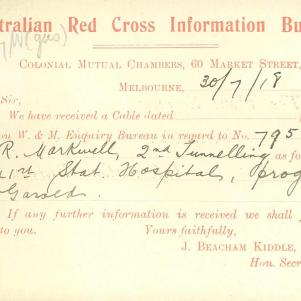 tralian Red Cross Information Bu
COLONIAL MUTUAL CHAMBERS, 60 MARKET STREET,
MELBOURNE, 30/7/18
Sir,
We have received a Cable dated
on W. & M. Enquiry Bureau in regard to No. 795
R. Markwell 2nd Tunnelling as fo
41st Stat. Hospital, prog
Garold.
If any further information is received we shall
to you. Yours faithfully,
J. BEACHAM KIDDLE,
Hon. Secr